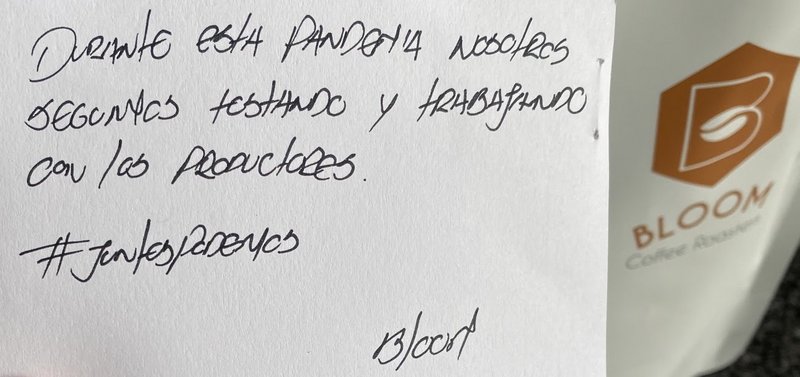 DURANTE ESTA PANDEMIA NOSOTROS
SEGUIMOS TOSTANDO Y TRABAJANDO
CON LOS PRODUCTORES.
#JUNTOSPODEMOS
Bloom
B
BLOOM
Coffee Roasters